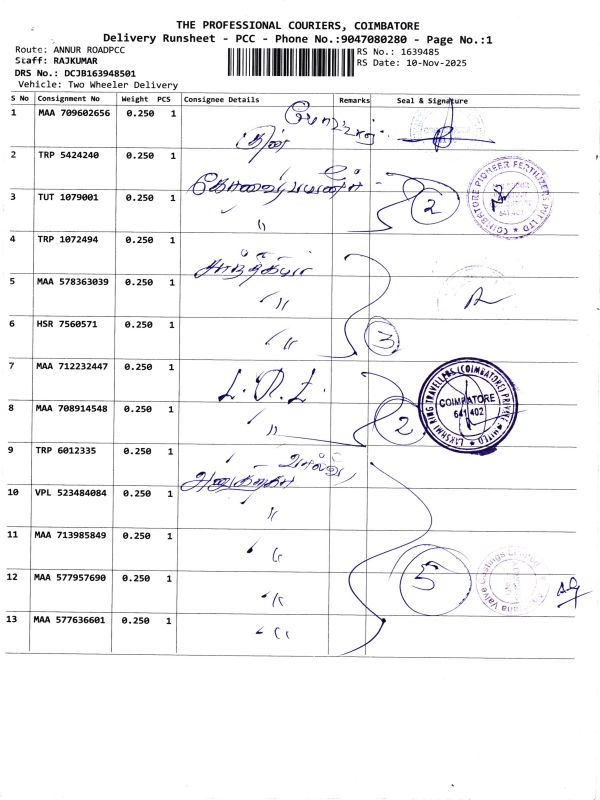 THE PROFESSIONAL COURIERS, COIMBATORE
Delivery Runsheet - PCC - Phone No.:9047080280 - Page No.:1
Route: ANNUR ROADPCC RS No.: 1639485
Staff: RAJKUMAR RS Date: 10-Nov-2025
DRS No.: DCJB163948501
Vehicle: Two Wheeler Delivery
S No Consignment No Weight PCS Consignee Details Remarks Seal & Signature
1 MAA 709602656 0.250 1
2 TRP 5424240 0.250 1
COIMBATORE PIONEER FERTILIZERS PVT LTD
641 402
3 TUT 1079001 0.250 1 〃 2
4 TRP 1072494 0.250 1
5 MAA 578363039 0.250 1 〃
6 HSR 7560571 0.250 1 〃 3
7 MAA 712232447 0.250 1 L. R. L.
LAKSHMI RING TRAVELLERS (COIMBATORE) PRIVATE LIMITED
COIMBATORE
641 402
8 MAA 708914548 0.250 1 〃 2
9 TRP 6012335 0.250 1
10 VPL 523484084 0.250 1 〃
11 MAA 713985849 0.250 1 〃
12 MAA 577957690 0.250 1 〃 5
Valve Castings
13 MAA 577636601 0.250 1 〃